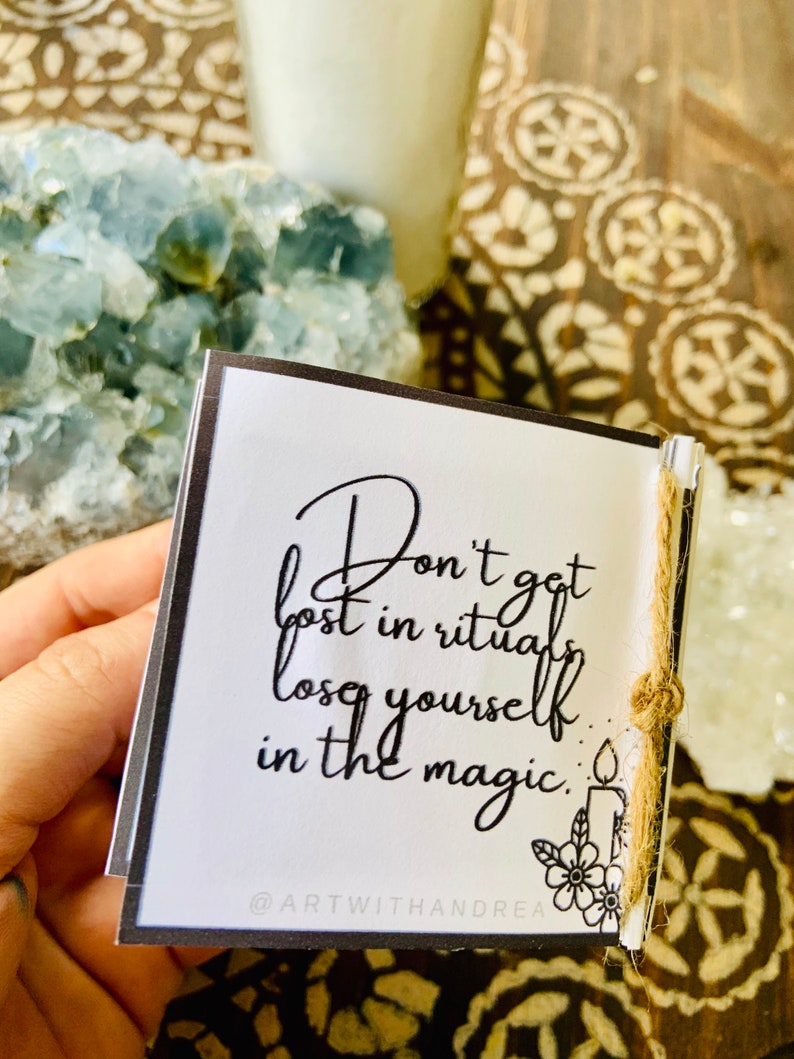 Don't get
lost in rituals,
lose yourself
in the magic.
@ARTWITHANDREA